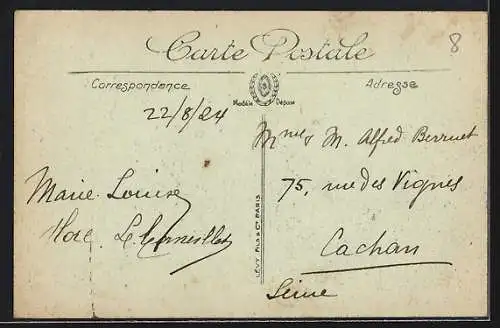 8
Carte Postale
Correspondance
Adresse
Modèle Déposé
22/8/24
Marie Louise
M. Alfred Berruet
75, rue des Vignes
Cachan
Seine
LÉVY FILS & Cie PARIS